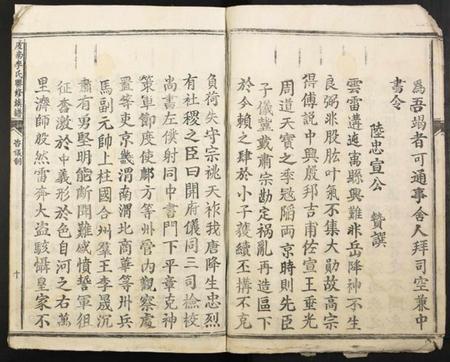 為吾場者可通事舍人拜司空兼中
書令
陸忠宣公 贊撰
雲雷遘迍寓縣興難非岳降神不生
良弼非股肱叶氣不集大勛故高宗
得傅說中興殷邦吉甫佐宣王垂光
周道天寶之季寇陷兩京時則先臣
子儀蹔戴肅宗勘定禍亂再造區下
於今賴之肆於小子獲纘丕搆不克
負荷失守宗祧天祚我唐降生忠烈
有社稷之臣曰開府儀同三司檢校
尚書左僕射同中書門下平章克神
策軍節度使鄜方等州管內觀察處
置等東京畿渭南渭北商華等州兵
馬副元帥上柱國合州羣王李晟沉
肅有勇堅明能斷開難感憤誓軍徂
征杳激於中義形於色自河之右萬
里濟師般然雷奔大盜駭懾皇家不
李氏聯修族譜
十